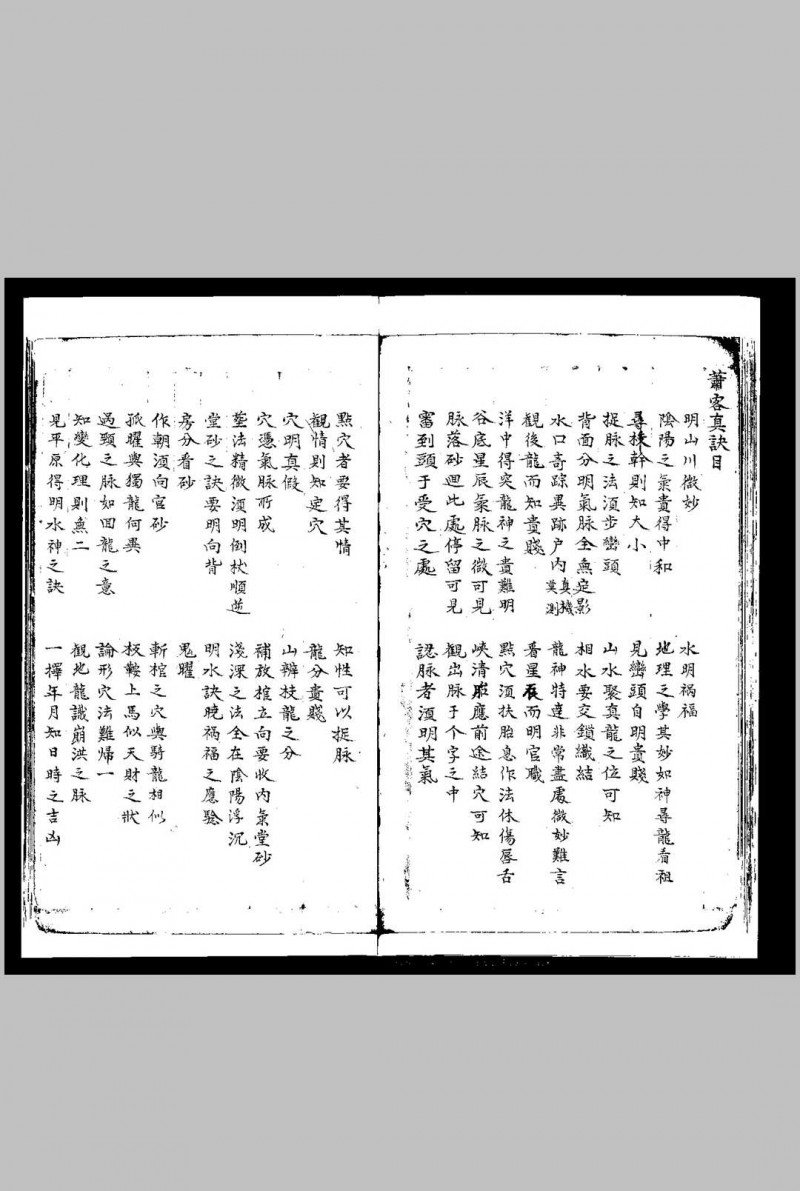 蕭客真訣目
明山川微妙 水明禍福
陰陽之氣貴得中和 地理之學其妙如神尋龍看祖
尋揀幹則知大小 見巒頭自明貴賤
捉脉之法須步巒頭 山水聚真龍之位可知
背面分明氣脉全無定影 相水要交鎖織結
水口奇踪異跡户内真機莫測 龍神特達非常盡處微妙難言
觀後龍而知貴賤 看星辰而明官職
洋中得突龍神之貴難明 點穴須扶胎息作法休傷唇舌
谷底星辰氣脉之微可見 峽清應前途結穴可知
脉落砂迴此處停留可見 觀出脉于个字之中
審到頭于受穴之處 認脉者須明其氣
點穴者要得其情 知性可以捉脉
觀情則知定穴 龍分貴賤
穴明真假 山辨枝龍之分
穴憑氣脉所成 補放棺立向要收内氣堂砂
葬法精微須明倒杖順逆 淺深之法全在陰陽浮沉
堂砂之訣要明向背 明水訣曉禍福之應驗
房分看砂 鬼曜
作朝須向官砂 斬棺之穴與騎龍相似
孤曜與獨龍何異 扳鞍上馬似天財之狀
過頸之脉如回龍之意 論形穴法難歸一
知變化理則無二 觀地龍讖崩洪之脉
見平原得明水神之訣 一擇年月知日時之吉凶